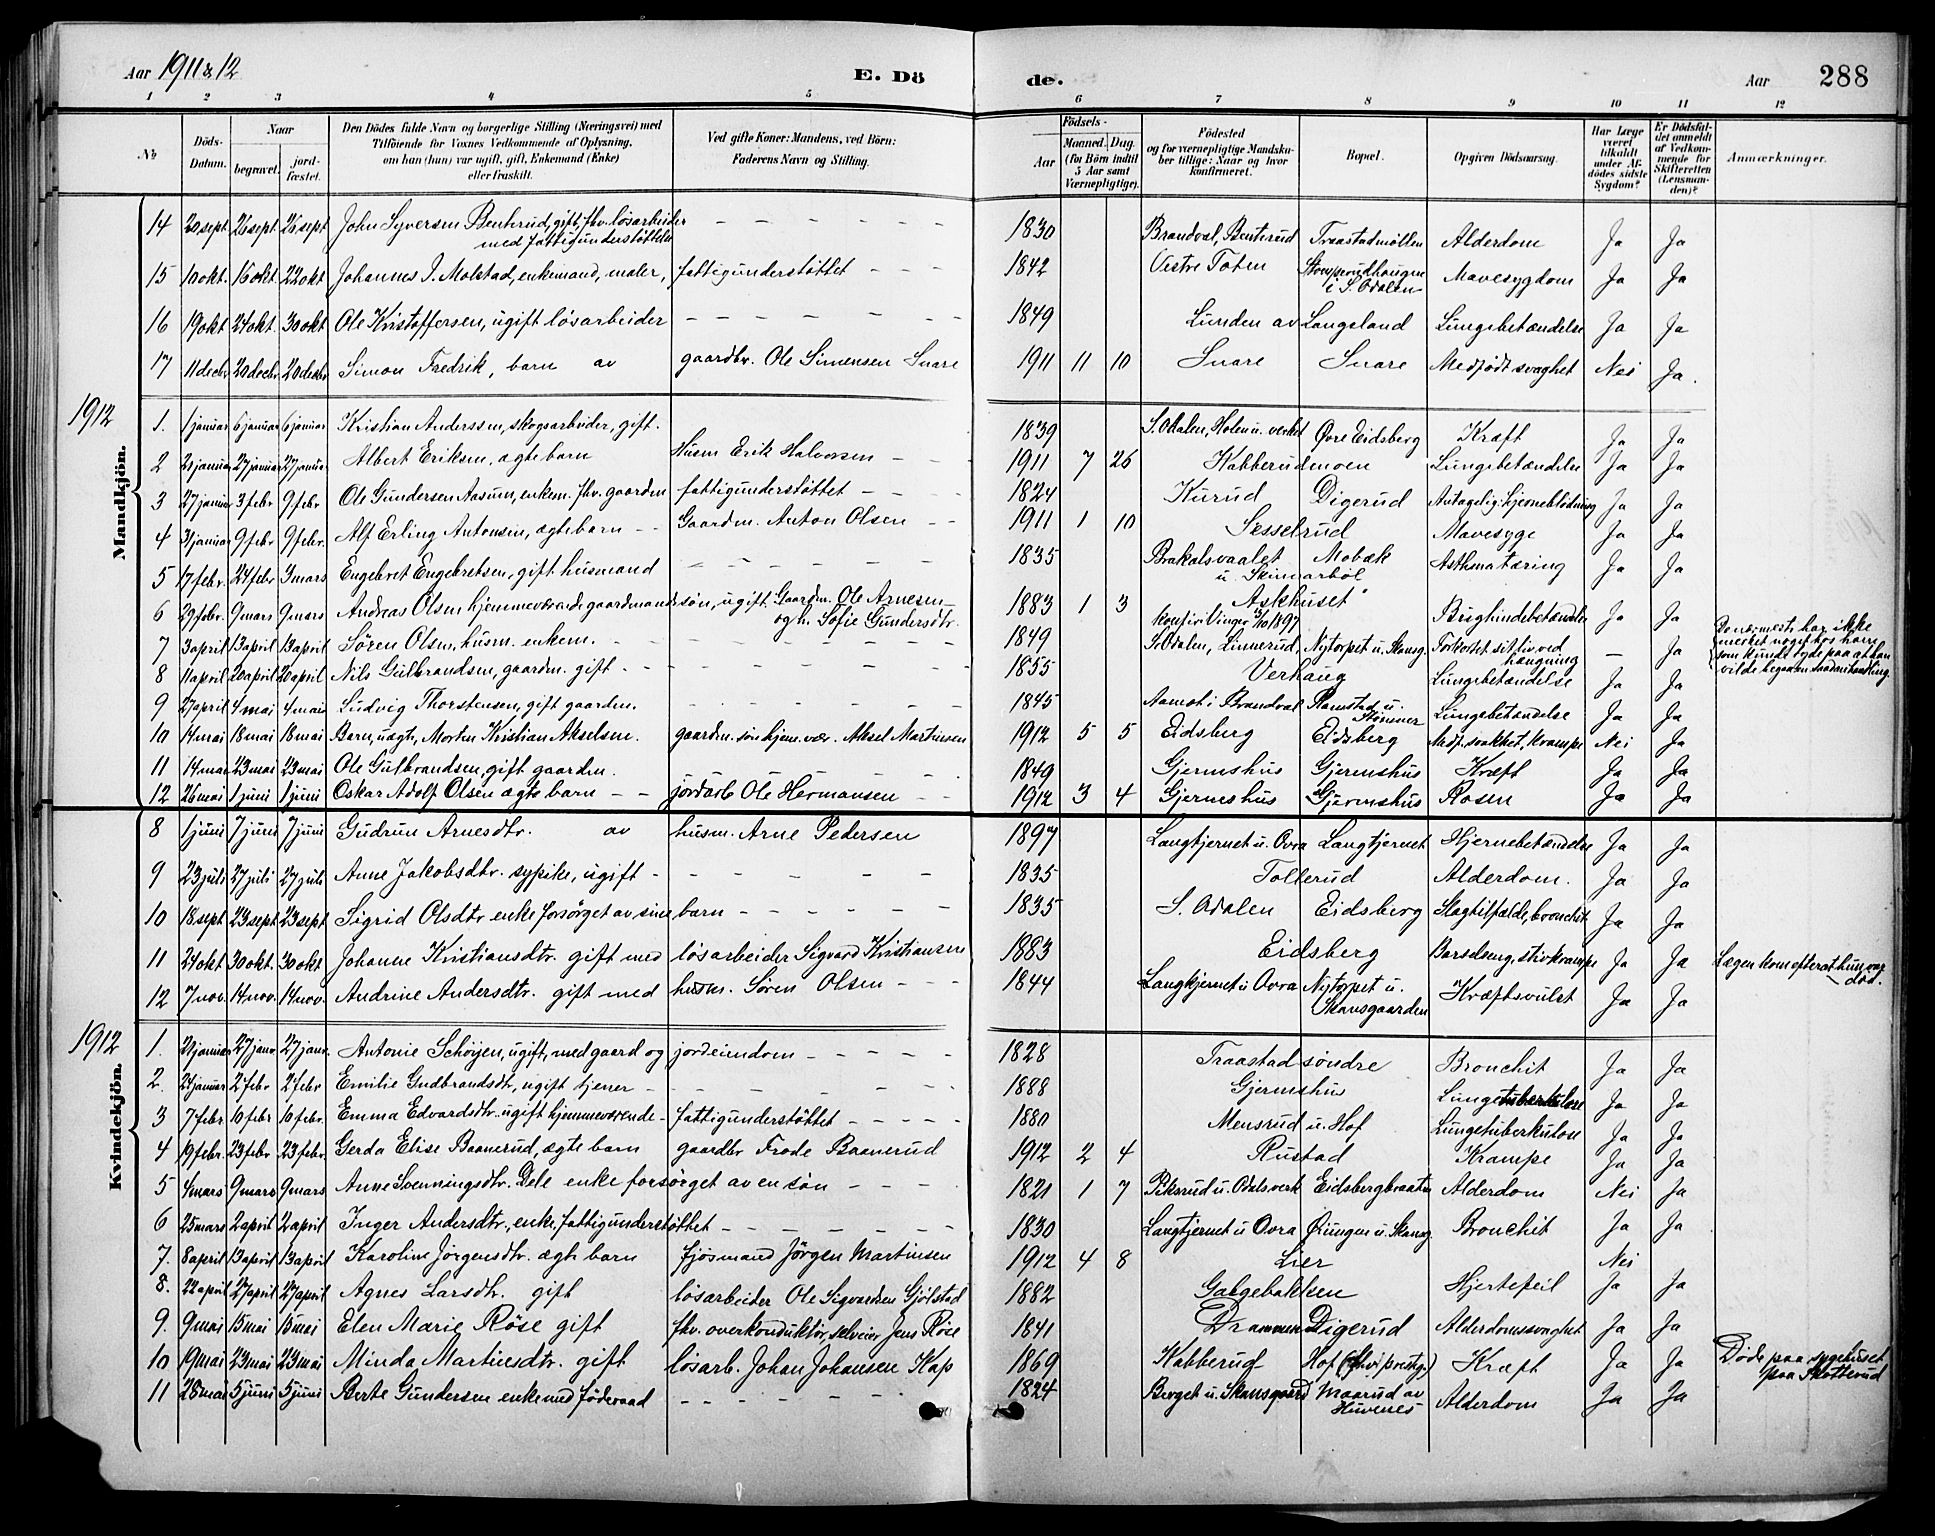 Aar 1911 & 12 E. Dö de. Aar 288
1 2 3 4 5 6 7 8 9 10 11 12
No Döds-Datum. Naar begravet. jord-fæstet. Den Dödes fulde Navn og borgerlige Stilling (Næringsvei) med Tilföiende for Voxnes Vedkommende af Oplysning, om han (hun) var ugift, gift, Enkemand (Enke) eller fraskilt. Ved gifte Koner: Mandens, ved Börn: Faderens Navn og Stilling. Födsels- Aar Maaned. Dag. (for Börn indtil 5 Aar samt Værnepligtige). Födested og for værnepligtige Mandskaber tillige: Naar og hvor konfirmeret. Bopæl. Opgiven Dödsaarsag. Har Læge været tilkaldt under Afdödes sidste Sygdom? Er Dödsfaldet anmeldt af Vedkommende for Skifteretten (Lensmanden)? Anmærkninger.
Mandkjön.
14 20 sept 26 sept 26 sept John Syversen Benterud, gift, fhv. løsarbeider med fattigunderstøttelse 1830 Brandval, Benterud Traastadmøllen Alderdom Ja Ja
15 10 okt. 16 okt 22 okt Johannes J. Molstad, enkemand, maler, fattigunderstøttet 1842 Vestre Toten i S. Odalen Mavesygdom Ja Ja
16 19 okt 24 okt. 30 okt Ole Kristoffersen, ugift løsarbeider 1849 Lunden av Langeland Lungebetændelse Ja Ja
17 11 decbr 20 decbr 20 decbr Simon Fredrik, barn av gaardbr. Ole Simensen Snare 1911 11 10 Snare Snare Medfødt svaghet Nei Ja.
1912
1. 1 januar 6 januar 6 januar Kristian Anderssen, skogsarbeider, gift. 1839 S. Odalen, Holen u. verket Øvre Eidsberg Kræft Ja Ja
2 21 januar 27 januar 27 januar Albert Eriksen, ægte barn Husm Erik Halvorsen 1911 7 26 Kabberudmoen Lungebetændelse Ja Ja
3 27 januar 3 febr 9 febr Ole Gundersen Aasum, enkem. fhv. gaardm fattigunderstøttet 1824 Kurud Digerud Antagelig hjerneblødning Ja Ja
4 31 januar 9 febr 9 febr. Alf Erling Antonsen, ægte barn Gaardm. Anton Olsen 1911 1 10 Sesselrud Mavesyge Ja Ja
5 17 febr. 24 febr 3 mars Engebret Engebretsen, gift husmand 1835 Brakalsvaalet Mobæk u. Skinnarbøl Asthmatæring Ja Ja
6 29 febr. 9 mars 9 mars Andreas Olsen hjemmeværende gaardmandssøn, ugift. Gaardm. Ole Arnesen og h. Sofie Gundersdtr. 1883 1 3 Askhuset konfir i Vinger 3/10 1897 Brysthindebetændelse Ja Ja
7 3 april 13 april 13 april Søren Olsen, husm. enkem. 1849 S. Odalen, Linnerud, Nytorpet u. Skansg. Forkortet sit liv ved hængning — Ja De nærmeste har ikke merket noget hos ham som kunde tyde paa at han vilde begaa en saadan handling.
8 11 april 20 april 20 april Nils Gulbrandsen, gaardm. gift. 1855 Verhaug Lungebetændelse Ja Ja
9 27 april 4 mai 4 mai Ludvig Thorstensen, gift gaardm. 1845 Aamot i Brandval Ramstad u. Stømner Lungebetændelse Ja Ja
10 14 mai 18 mai 18 mai Barn, uægt., Morten Kristian Akselsen. gaardm. søn hjem. vær. Aksel Martinsen 1912 5 5 Eidsberg Eidsberg Medf. svakhet, krampe Nei Ja
11 14 mai 23 mai 23 mai Ole Gulbrandsen, gift gaardm. 1849 Gjermshus Gjermshus Kræft Ja Ja
12 26 mai 1 juni 1 juni Oskar Adolf Olsen ægte barn jordarb Ole Hermansen 1912 3 4 Gjermshus Gjermshus Rosen Ja Ja
Kvindekjön.
8 1 juni 7 juni 7 juni Gudrun Arnesdtr. av husm. Arne Pedersen 1897 Langtjernet u. Ovra Langtjernet Hjernebetændelse Ja Ja
9 23 juli 27 juli 27 juli Anne Jakobsdtr. sypike, ugift 1835 Tollerud Alderdom. Ja Ja
10 18 sept 23 sept 23 sept Sigrid Olsdtr enke forsørget av sine barn 1835 S. Odalen Eidsberg Slagtilfælde, bronchit Ja Ja
11 24 okt 30 okt. 30 okt Johanne Kristiansdtr. gift med løsarbeider Sigvard Kristiansen 1883 Eidsberg Barselseng, stivkrampe Ja Ja Lægen kom efter at hun var død.
12 7 nov. 14 nov. 14 nov. Andrine Andersdtr. gift med husm. Søren Olsen 1844 Langtjernet u Ovra Nytorpet u. Skansgaarden Kræftsvulst Ja Ja
1912
1. 21 januar 27 janv 27 janv. Antonie Schøyen, ugift, med gaard og jordeiendom 1828 Traastad søndre Bronchit Ja Ja
2. 24 januar 2 febr 2 febr Emilie Gudbrandsdtr, ugift tjener 1888 Gjermshus Lungetuberkulose Ja Ja
3 7 febr. 10 febr 10 febr. Emma Edvardsdtr. ugift hjemmeværende fattigunderstøttet 1880 Mensrud u. Hof Lungetuberkulose Ja Ja
4 19 febr. 23 febr 23 febr. Gerda Elise Baanerud, ægte barn gaardbr Frode Baanerud 1912 2 4 Rustad Krampe Ja Ja
5 4 mars 9 mars 9 mars Anne Svenningsdtr. Dele enke forsørget av en søn 1821 1 7 Piksrud u. Odals verk Eidsbergbraaten Alderdom Nei Ja
6 25 mars 2 april 2 april Inger Andersdtr, enke, fattigunderstøttet 1830 Langtjernet u Ovra Øiungen u. Skansg Bronchit Ja Ja
7. 8 april 13 april 13 april Karoline Jørgensdtr. ægte barn fjøsmand Jørgen Martinsen 1912 4 8 Lier Nei
8. 22 april 27 april 27 april Agnes Larsdtr. gift løsarbeider Ole Sigvardsen Gjølstad 1882 Galgebakken Hjertefeil Ja Ja
9. 9 mai 15 mai 15 mai Elen Marie Røse gift fhv. overkonduktør, selveier Jens Røse 1841 Drammen Digerud Alderdomssvaghet Ja Ja
10 19 mai 23 mai 23 mai Minda Martinsdtr. gift løsarb. Johan Johansen Kap 1869 Kabberud Hof Kræft Ja Ja Døde paa sygehuset paa Skotterud
11 28 mai 5 juni 5 juni Berte Gundersen enke med føderaad 1824 Berget u. Skansgaard Maarud av Huvenes Alderdom Ja Ja